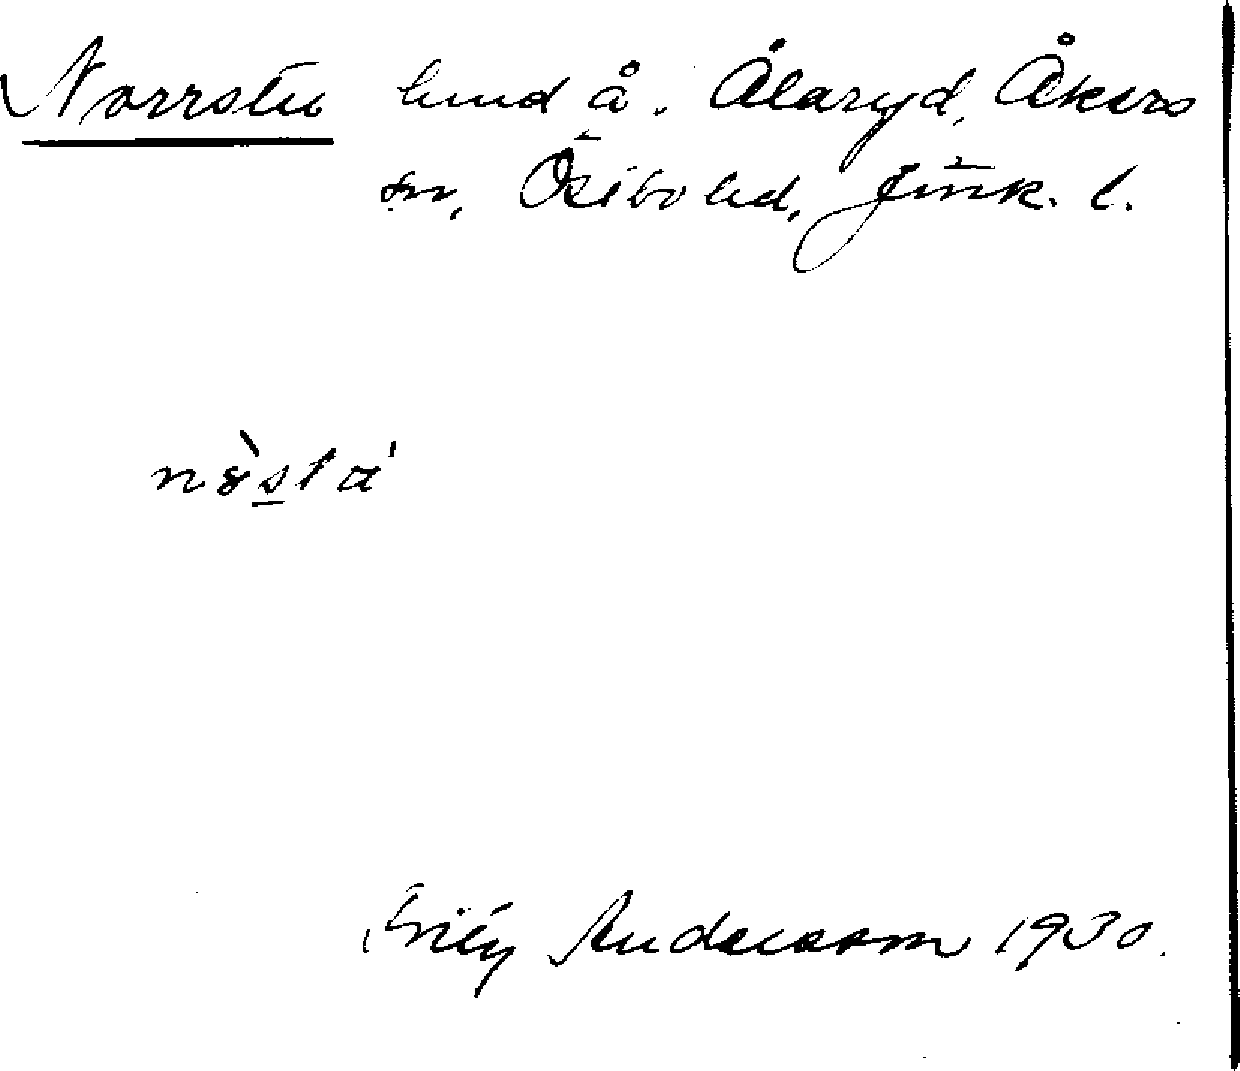 Norrstu hmd å. Ålaryd, Åkers
sn, Östbo hd, Jönk. l.
nɤ̀stá
Andersson 1930.